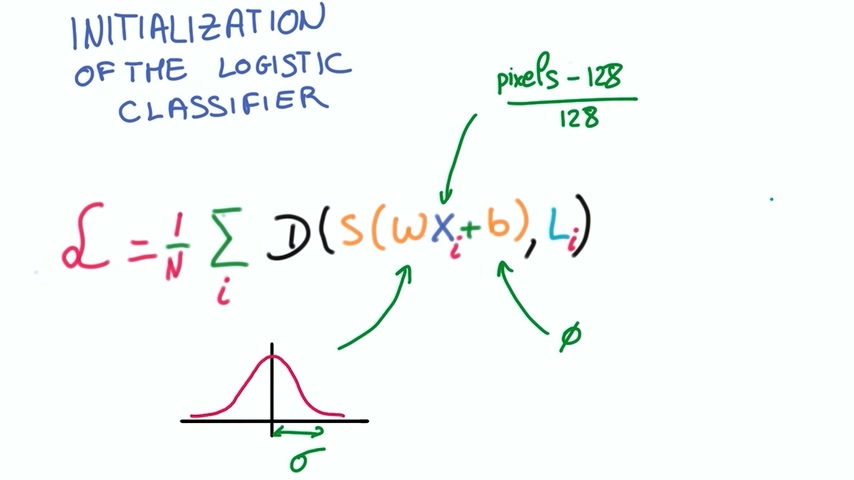 INITIALIZATION
OF THE LOGISTIC
CLASSIFIER
pixels - 128
128
ℒ = 1/N Σ_i D(S(WX_i + b), L_i)
ϕ
σ